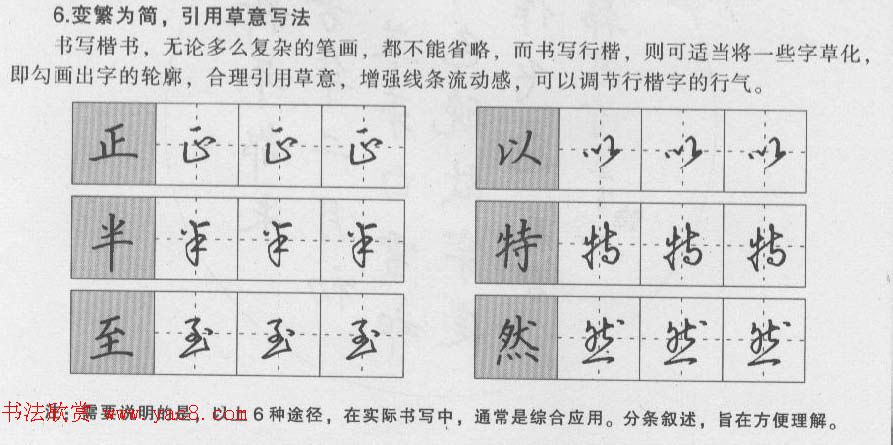 6.变繁为简，引用草意写法
书写楷书，无论多么复杂的笔画，都不能省略，而书写行楷，则可适当将一些字草化，
即勾画出字的轮廓，合理引用草意，增强线条流动感，可以调节行楷字的行气。
正 正 正 正 以 以 以 以
半 半 半 半 特 特 特 特
至 至 至 至 然 然 然 然
注：需要说明的是，以上6种途径，在实际书写中，通常是综合应用。分条叙述，旨在方便理解。
书法欣赏 www.yac8.com